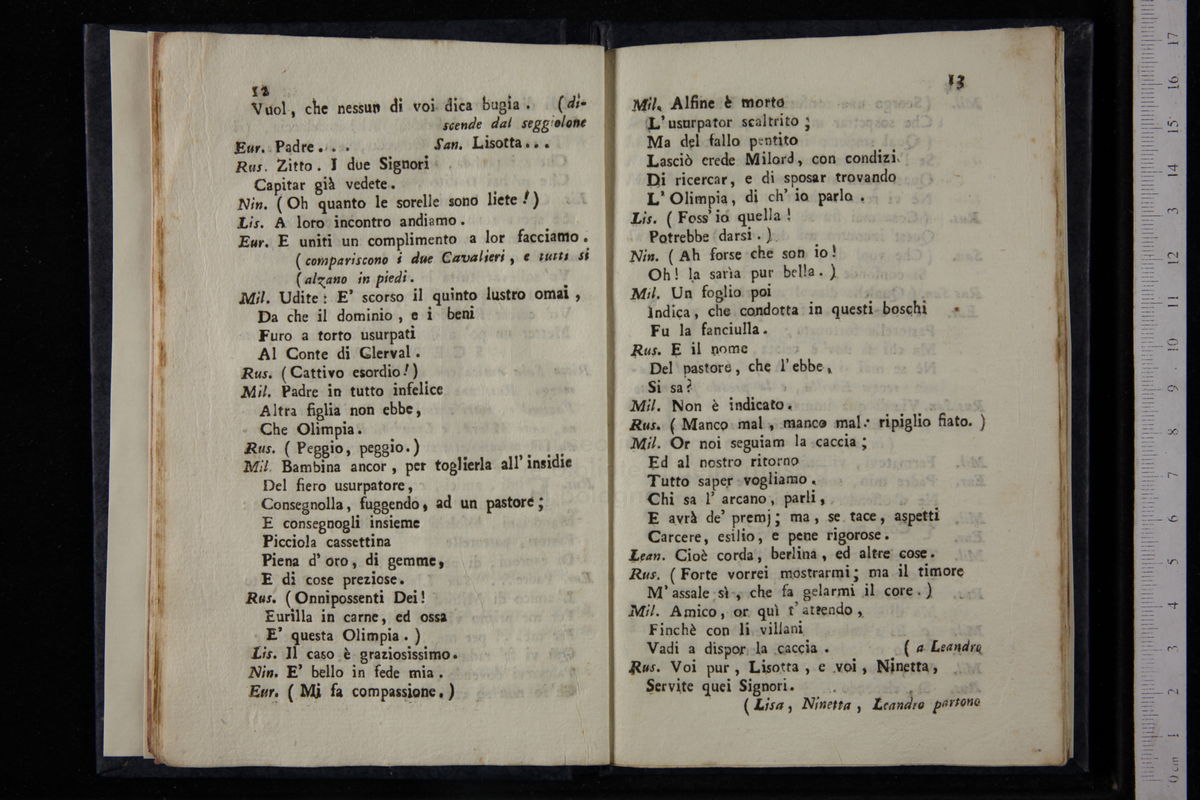 12
Vuol, che nessun di voi dica bugia. (di-
scende dal seggiolone
Eur. Padre... San. Lisotta...
Rus. Zitto. I due Signori
Capitar già vedete.
Nin. (Oh quanto le sorelle sono liete!)
Lis. A loro incontro andiamo.
Eur. E uniti un complimento a lor facciamo.
(compariscono i due Cavalieri, e tutti si
(alzano in piedi.
Mil. Udite: E' scorso il quinto lustro omai,
Da che il dominio, e i beni
Furo a torto usurpati
Al Conte di Clerval.
Rus. (Cattivo esordio!)
Mil. Padre in tutto infelice
Altra figlia non ebbe,
Che Olimpia.
Rus. (Peggio, peggio.)
Mil Bambina ancor, per toglierla all'insidie
Del fiero usurpatore,
Consegnolla, fuggendo, ad un pastore;
E consegnogli insieme
Picciola cassettina
Piena d'oro, di gemme,
E di cose preziose.
Rus. (Onnipossenti Dei!
Eurilla in carne, ed ossa
E' questa Olimpia.)
Lis. Il caso è graziosissimo.
Nin. E' bello in fede mia.
Eur. (Mi fa compassione.)
13
Mil. Alfine è morto
L'usurpator scaltrito;
Ma del fallo pentito
Lasciò erede Milord, con condizi
Di ricercar, e di sposar trovando
L'Olimpia, di ch' io parlo.
Lis. (Foss'io quella!
Potrebbe darsi.)
Nin. (Ah forse che son io!
Oh! la sarìa pur bella.)
Mil. Un foglio poi
Indica, che condotta in questi boschi
Fu la fanciulla.
Rus. E il nome
Del pastore, che l'ebbe,
Si sa?
Mil. Non è indicato.
Rus. (Manco mal, manco mal: ripiglio fiato.)
Mil. Or noi seguiam la caccia;
Ed al nostro ritorno
Tutto saper vogliamo.
Chi sa l' arcano, parli,
E avrà de' premj; ma, se tace, aspetti
Carcere, esilio, e pene rigorose.
Lean. Cioè corda, berlina, ed altre cose.
Rus. (Forte vorrei mostrarmi; ma il timore
M'assale sì, che fa gelarmi il core.)
Mil. Amico, or quì t'attendo,
Finchè con li villani
Vadi a dispor la caccia. (a Leandro
Rus. Voi pur, Lisotta, e voi, Ninetta,
Servite quei Signori.
(Lisa, Ninetta, Leandro partono
0 cm 1 2 3 4 5 6 7 8 9 10 11 12 13 14 15 16 17